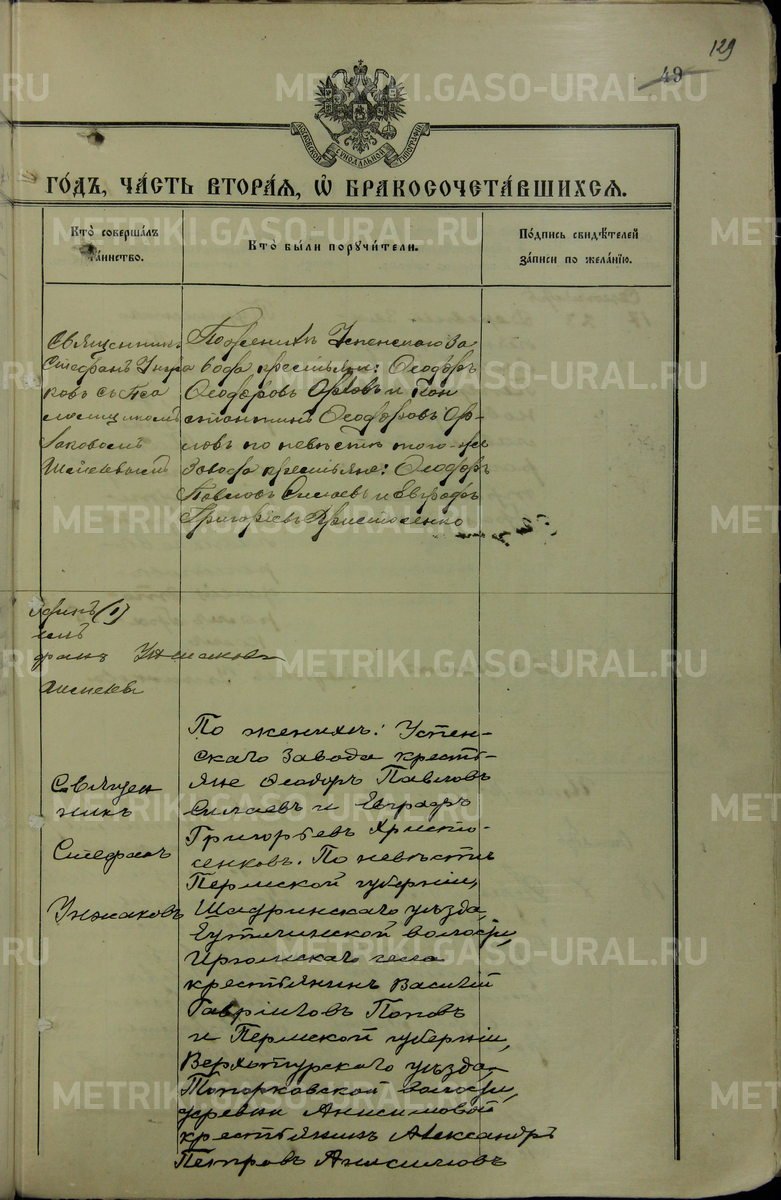 129
49
МОСКОВСКОЙ СѴНОДАЛЬНОЙ ТИПОГРАФІИ
ГО́ДЪ, ЧА́СТЬ ВТОРА́Я, Ѡ҆ БРАКОСОЧЕТА́ВШИХСЯ.
Кто̀ соверша́лъ та́инство.
Кто̀ бы́ли пору̀чи́тели.
По́дпись свидѣ́телей за́писи по жела́нїю.
Священникъ
Стефанъ Унжа
ковъ съ Пса
ломщикомъ
Іаковомъ
По женихѣ Успенскаго За
вода крестьяне: Ѳеодоръ
Ѳеодоровъ Орловъ и Кон
стантинъ Ѳеодоровъ Ор-
ловъ по невѣстѣ того-же
Завода крестьяне: Ѳеодоръ
Павловъ Силаевъ и Евграфъ
Григорьевъ Христосенко
Унжаковъ
По женихѣ: Успен-
скаго Завода кресть-
яне Ѳеодоръ Павловъ
Силаевъ и Евграфъ
Григорьевъ Христо-
сенковъ. По невѣстѣ
Пермской губерніи,
Шадринскаго уѣзда,
волости,
села
крестьянинъ Василій
Гавриловъ Поповъ
и Пермской губерніи,
Верхотурскаго уѣзда
Топорковской волости,
деревни Анисимовой
крестьянинъ Александръ
Петровъ Анисимовъ
Священ
никъ
Стефанъ
Унжаковъ
METRIKI.GASO-URAL.RU